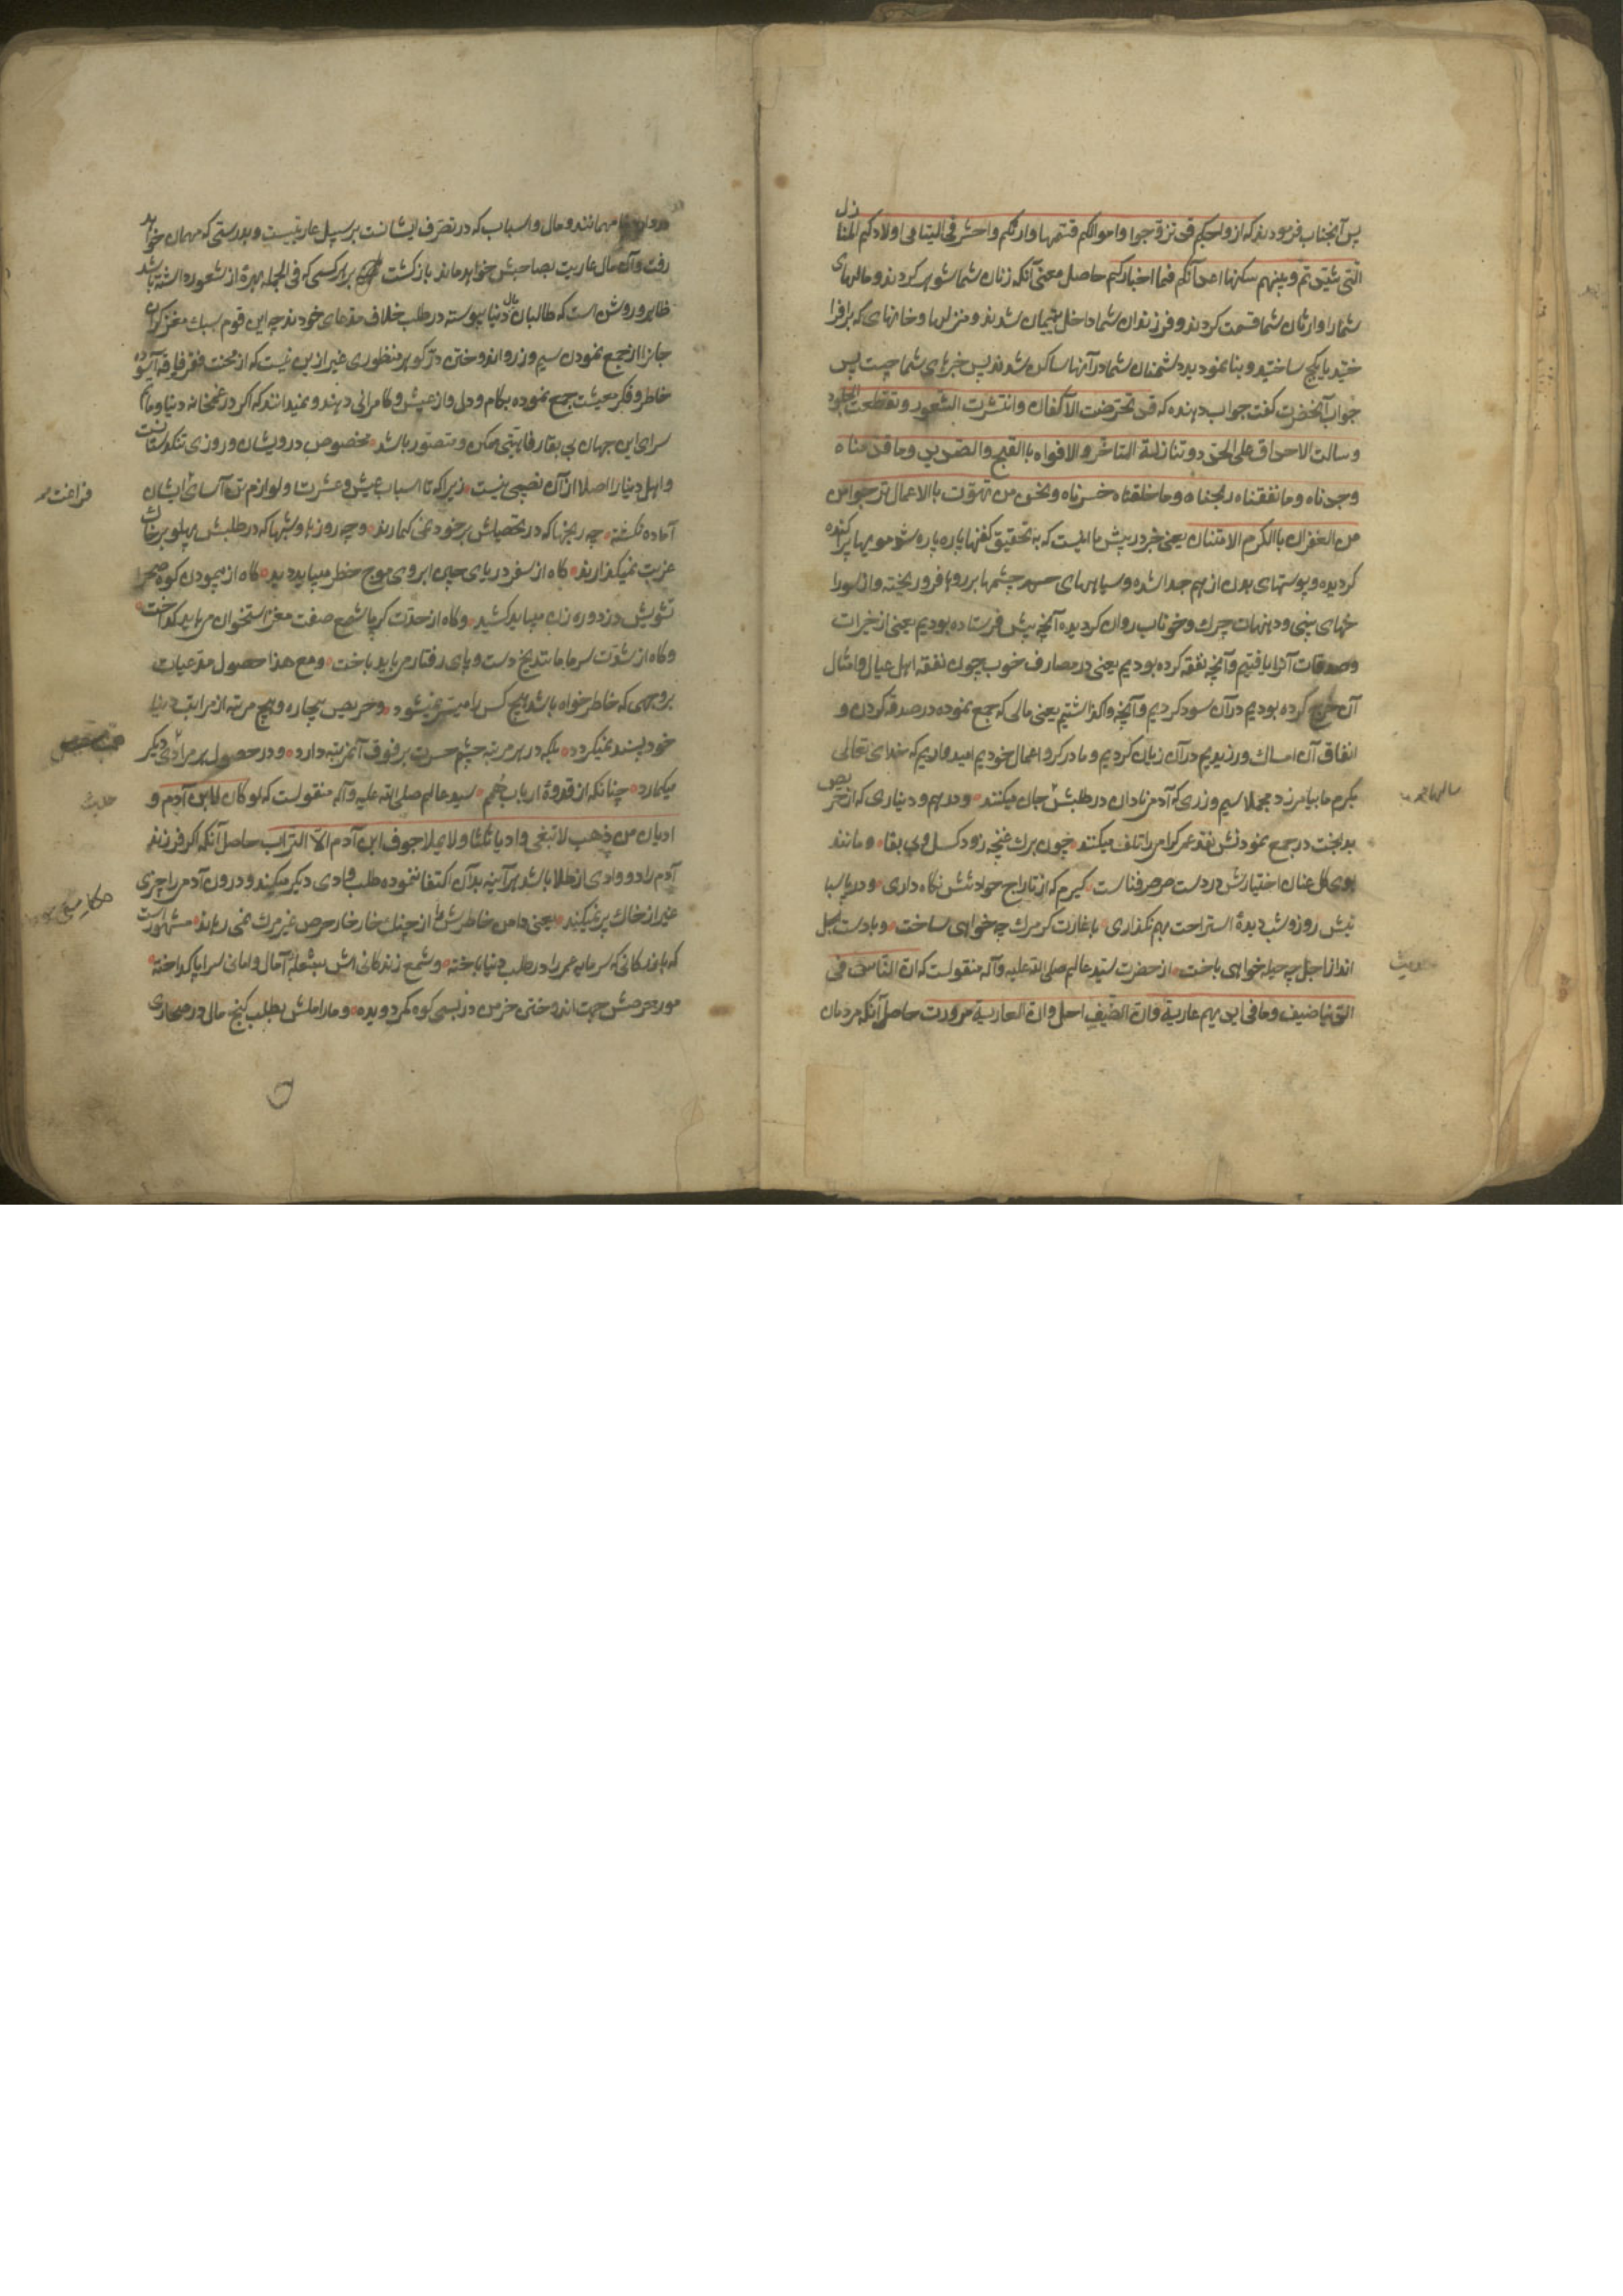 پس آنجناب فرمودند که ازواجکم قد تزوجوا واموالکم قسمها وارثکم واحشر فی الیتامی اولادکم المنازل
التی شیدتم وبنیتم سکنها اعدآئکم فما اخبارکم حاصل معنی آنکه زنان شما شوهر کردند ومالهای
شما را وارثان شما قسمت کردند وفرزندان شما داخل یتیمان شدند ومنزلها وخانهای که برافرا
ختید یا بکچ ساختید وبنا نمودید دشمنان شما در آنها ساکن شدند پس خبرهای شما چیست پس
جواب آنحضرت گفت جواب دهنده که قد تخرقت الاکفان وانتشرت الشعور وتقطعت الجلود
وسالت الاحداق علی الخدود وتنازلت المناخر والافواه باالقیح والصدید وما قدمناه
وجدناه وما نفقناه ربحناه وما خلفناه خسرناه ونحن من بالاعمال نرجوا من
من الغفران باالکرم الامتنان یعنی خبر در پیش ما اینست که به تحقیق کفنها پاره پاره شد مویها پراکنده
کردیده وپوستهای بدن از هم جدا شده وسیاهیهای چشمها بر روها فرو ریخته واز سورا
خهای بینی ودهنهات چرک وخوناب روان کردیده آنچه پیش فرستاده بودیم یعنی از خیرات
وصدقات آنرا یافتیم وآنچه نفقه کرده بودیم یعنی در مصارف خوب چون نفقه اهل عیال وامثال
آن خرج کرده بودیم در آن سود کردیم وآنچه واکذاشتیم یعنی مالی که جمع نموده در صدقه کردن و
انفاق آن امساک ورزیدیم در آن زیان کردیم وما در کرو اعمال خودیم امیدواریم که خدای تعالی
بکرم ما بیامرزد مجملا سیم وزری که آدم نادان در طلبش جان میکنند ودرهم ودیناری که از حریص
بدبخت در جمع نمودنش نقد عمر کرامی را تلف میکند چون برک غنچه زود کسل وبی بقا ومانند
بوی کل عنان اختیارش در دست صرصر فناست کیرم که از تاراج حوادثش نکاه داری ودر پاسبا
نیش روز وشب دیدهٔ استراحت بهم نکذاری با غارت کر مرک چه خواهی ساخت وبا دست
انداز اجل چه حیله خواهی باخت از حضرت سیّد عالم صلی الله علیه وآله منقولست که ان الناس فی
الدنیا ضیف وما فی ایدیهم عاریة وان الضیف راحل وان العاریة مردودت حاصل آنکه مردمان
سالها
حدیث
مهمانند ومال واسباب که در تصرف ایشانست بر سبیل عاریتست وبدرستی که مهمان خواهد
رفت وآن مال عاریت بصاحبش خواهد ماند بازکشت بر هر کسی که فی الجمله بهرهٔ از شعور داشته باشد
ظاهر وروشن است که طالبان مال دنیا پیوسته در طلب خلاف مدعای خودند چه این قوم سبک مغز کران
جانرا از جمع نمودن سیم وزر واندوختن در وکوهر منظوری غیر ازین نیست که از محنت فقر وفاقه آسوده
خاطر وفکر معیشت جمع نموده بکام ودل واز عیش وکامرانی دهند ونمیدانند که اکر در غمخانه دنیا وماتم
سرای این جهان بی بقا رفاهیتی ممکن ومتصور باشد مخصوص درویشان وروزی تنکدستانست
واهل دنیا را اصلا از آن نصیبی نیست زیرا که تا اسباب عیش وعشرت ولوازم تن آسای ایشان
آماده نکشته چه رنجها که در تحصیلش بر خود نمی کمارند وچه روزها وشبها که در طلبش پهلو بر خاک
غربت نمیکذارند کاه از سفر دریای چین ابروی موج خطر میباید دید کاه از پیمودن کوه صحرا
تشویش دزد وره زن میباید کشید وکاه از حدّت کرما شمع صفت مغز استخوان میباید کداخت
وکاه از شدّت سرما دست وپای رفتار میباید باخت ومع هذا حصول مدّعیات
بر وجهی که خاطر خواه باشد هیچ کس را میسّر نمیشود وحریص بیچاره وهیچ مرتبه از مراتب دنیا
خود پسند نمیکردد بلکه در هر مرتبه چشم حسرت بر فوق آنمرتبه دارد ودر حصول هر مرادی دیکر
میکمارد چنانکه از قدوهٔ ارباب همم سید عالم صلی الله علیه وآله منقولست که لو کان لابن آدم و
ادیان من ذهب لابتغی وادیا ثالثا ولا یملا جوف ابن آدم الاّ التراب حاصل آنکه اکر فرزند
آدم را دو وادی از طلا باشد هر آینه بدآن اکتفا ننموده طلب وادی دیکر میکند ودرون آدمی را چیزی
غیر از خاک پر نمیکند یعنی دامن خاطرش را از چنک خار خار حرص غیر مرک نمی رهاند مشهور است
که بازدکانی که سرمایه عمر را در طلب دنیا باخته وشمع زندکانی اش بشعلهٔ آمال وامانی سراپا کداخته
مور حرصش جهت اندوختن خرمن در بسی کوه کمر دویده ومار املش بطلب کنج مال در صحاری
فراغت
حدیث